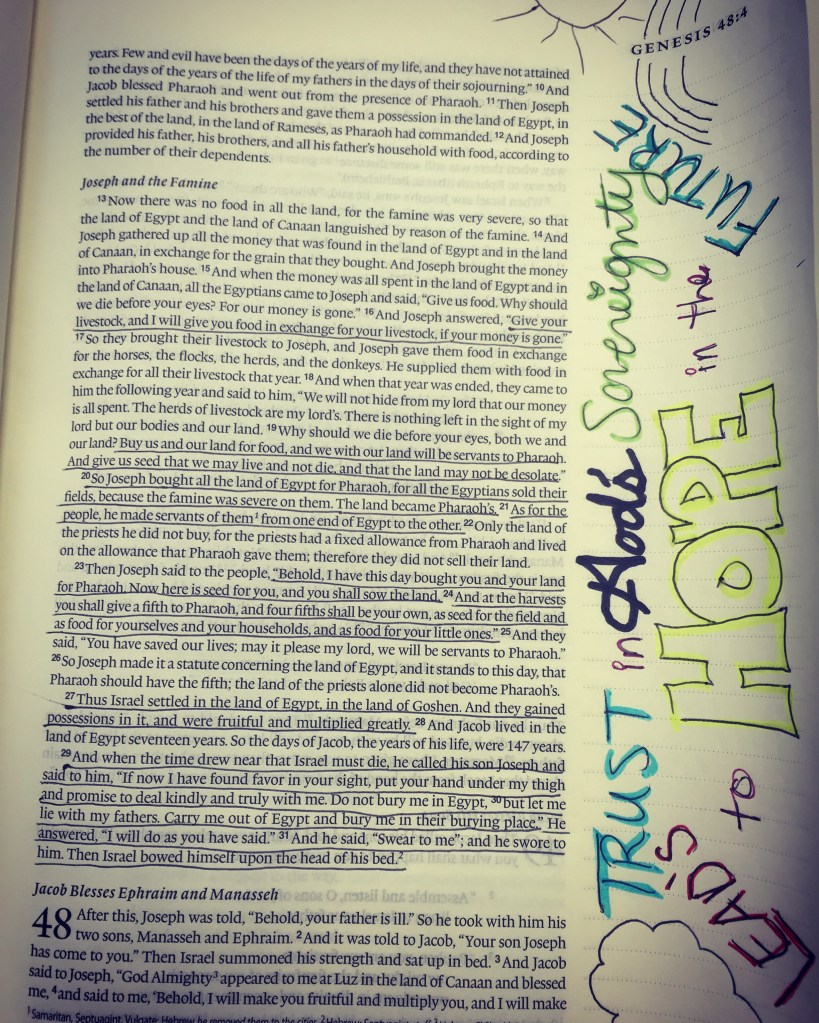 GENESIS 48:4
years. Few and evil have been the days of the years of my life, and they have not attained
to the days of the years of the life of my fathers in the days of their sojourning.” 10 And
Jacob blessed Pharaoh and went out from the presence of Pharaoh. 11 Then Joseph
settled his father and his brothers and gave them a possession in the land of Egypt, in
the best of the land, in the land of Rameses, as Pharaoh had commanded. 12 And Joseph
provided his father, his brothers, and all his father's household with food, according to
the number of their dependents.
Joseph and the Famine
13 Now there was no food in all the land, for the famine was very severe, so that
the land of Egypt and the land of Canaan languished by reason of the famine. 14 And
Joseph gathered up all the money that was found in the land of Egypt and in the land
of Canaan, in exchange for the grain that they bought. And Joseph brought the money
into Pharaoh's house. 15 And when the money was all spent in the land of Egypt and in
the land of Canaan, all the Egyptians came to Joseph and said, “Give us food. Why should
we die before your eyes? For our money is gone.” 16 And Joseph answered, “Give your
livestock, and I will give you food in exchange for your livestock, if your money is gone.”
17 So they brought their livestock to Joseph, and Joseph gave them food in exchange
for the horses, the flocks, the herds, and the donkeys. He supplied them with food in
exchange for all their livestock that year. 18 And when that year was ended, they came to
him the following year and said to him, “We will not hide from my lord that our money
is all spent. The herds of livestock are my lord's. There is nothing left in the sight of my
lord but our bodies and our land. 19 Why should we die before your eyes, both we and
our land? Buy us and our land for food, and we with our land will be servants to Pharaoh.
And give us seed that we may live and not die, and that the land may not be desolate.”
20 So Joseph bought all the land of Egypt for Pharaoh, for all the Egyptians sold their
fields, because the famine was severe on them. The land became Pharaoh's. 21 As for the
people, he made servants of them1 from one end of Egypt to the other. 22 Only the land of
the priests he did not buy, for the priests had a fixed allowance from Pharaoh and lived
on the allowance that Pharaoh gave them; therefore they did not sell their land.
23 Then Joseph said to the people, “Behold, I have this day bought you and your land
for Pharaoh. Now here is seed for you, and you shall sow the land. 24 And at the harvests
you shall give a fifth to Pharaoh, and four fifths shall be your own, as seed for the field and
as food for yourselves and your households, and as food for your little ones.” 25 And they
said, “You have saved our lives; may it please my lord, we will be servants to Pharaoh.”
26 So Joseph made it a statute concerning the land of Egypt, and it stands to this day, that
Pharaoh should have the fifth; the land of the priests alone did not become Pharaoh's.
27 Thus Israel settled in the land of Egypt, in the land of Goshen. And they gained
possessions in it, and were fruitful and multiplied greatly. 28 And Jacob lived in the
land of Egypt seventeen years. So the days of Jacob, the years of his life, were 147 years.
29 And when the time drew near that Israel must die, he called his son Joseph and
said to him, “If now I have found favor in your sight, put your hand under my thigh
and promise to deal kindly and truly with me. Do not bury me in Egypt, 30 but let me
lie with my fathers. Carry me out of Egypt and bury me in their burying place.” He
answered, “I will do as you have said.” 31 And he said, “Swear to me”; and he swore to
him. Then Israel bowed himself upon the head of his bed.2
Jacob Blesses Ephraim and Manasseh
48 After this, Joseph was told, “Behold, your father is ill.” So he took with him his
two sons, Manasseh and Ephraim. 2 And it was told to Jacob, “Your son Joseph
has come to you.” Then Israel summoned his strength and sat up in bed. 3 And Jacob
said to Joseph, “God Almighty3 appeared to me at Luz in the land of Canaan and blessed
me, 4 and said to me, ‘Behold, I will make you fruitful and multiply you, and I will make
1 Samaritan, Septuagint, Vulgate; Hebrew he removed them to the cities 2 Hebrew; Septuagint
TRUST in God's Sovereignty
LEADS to HOPE in the FUTURE